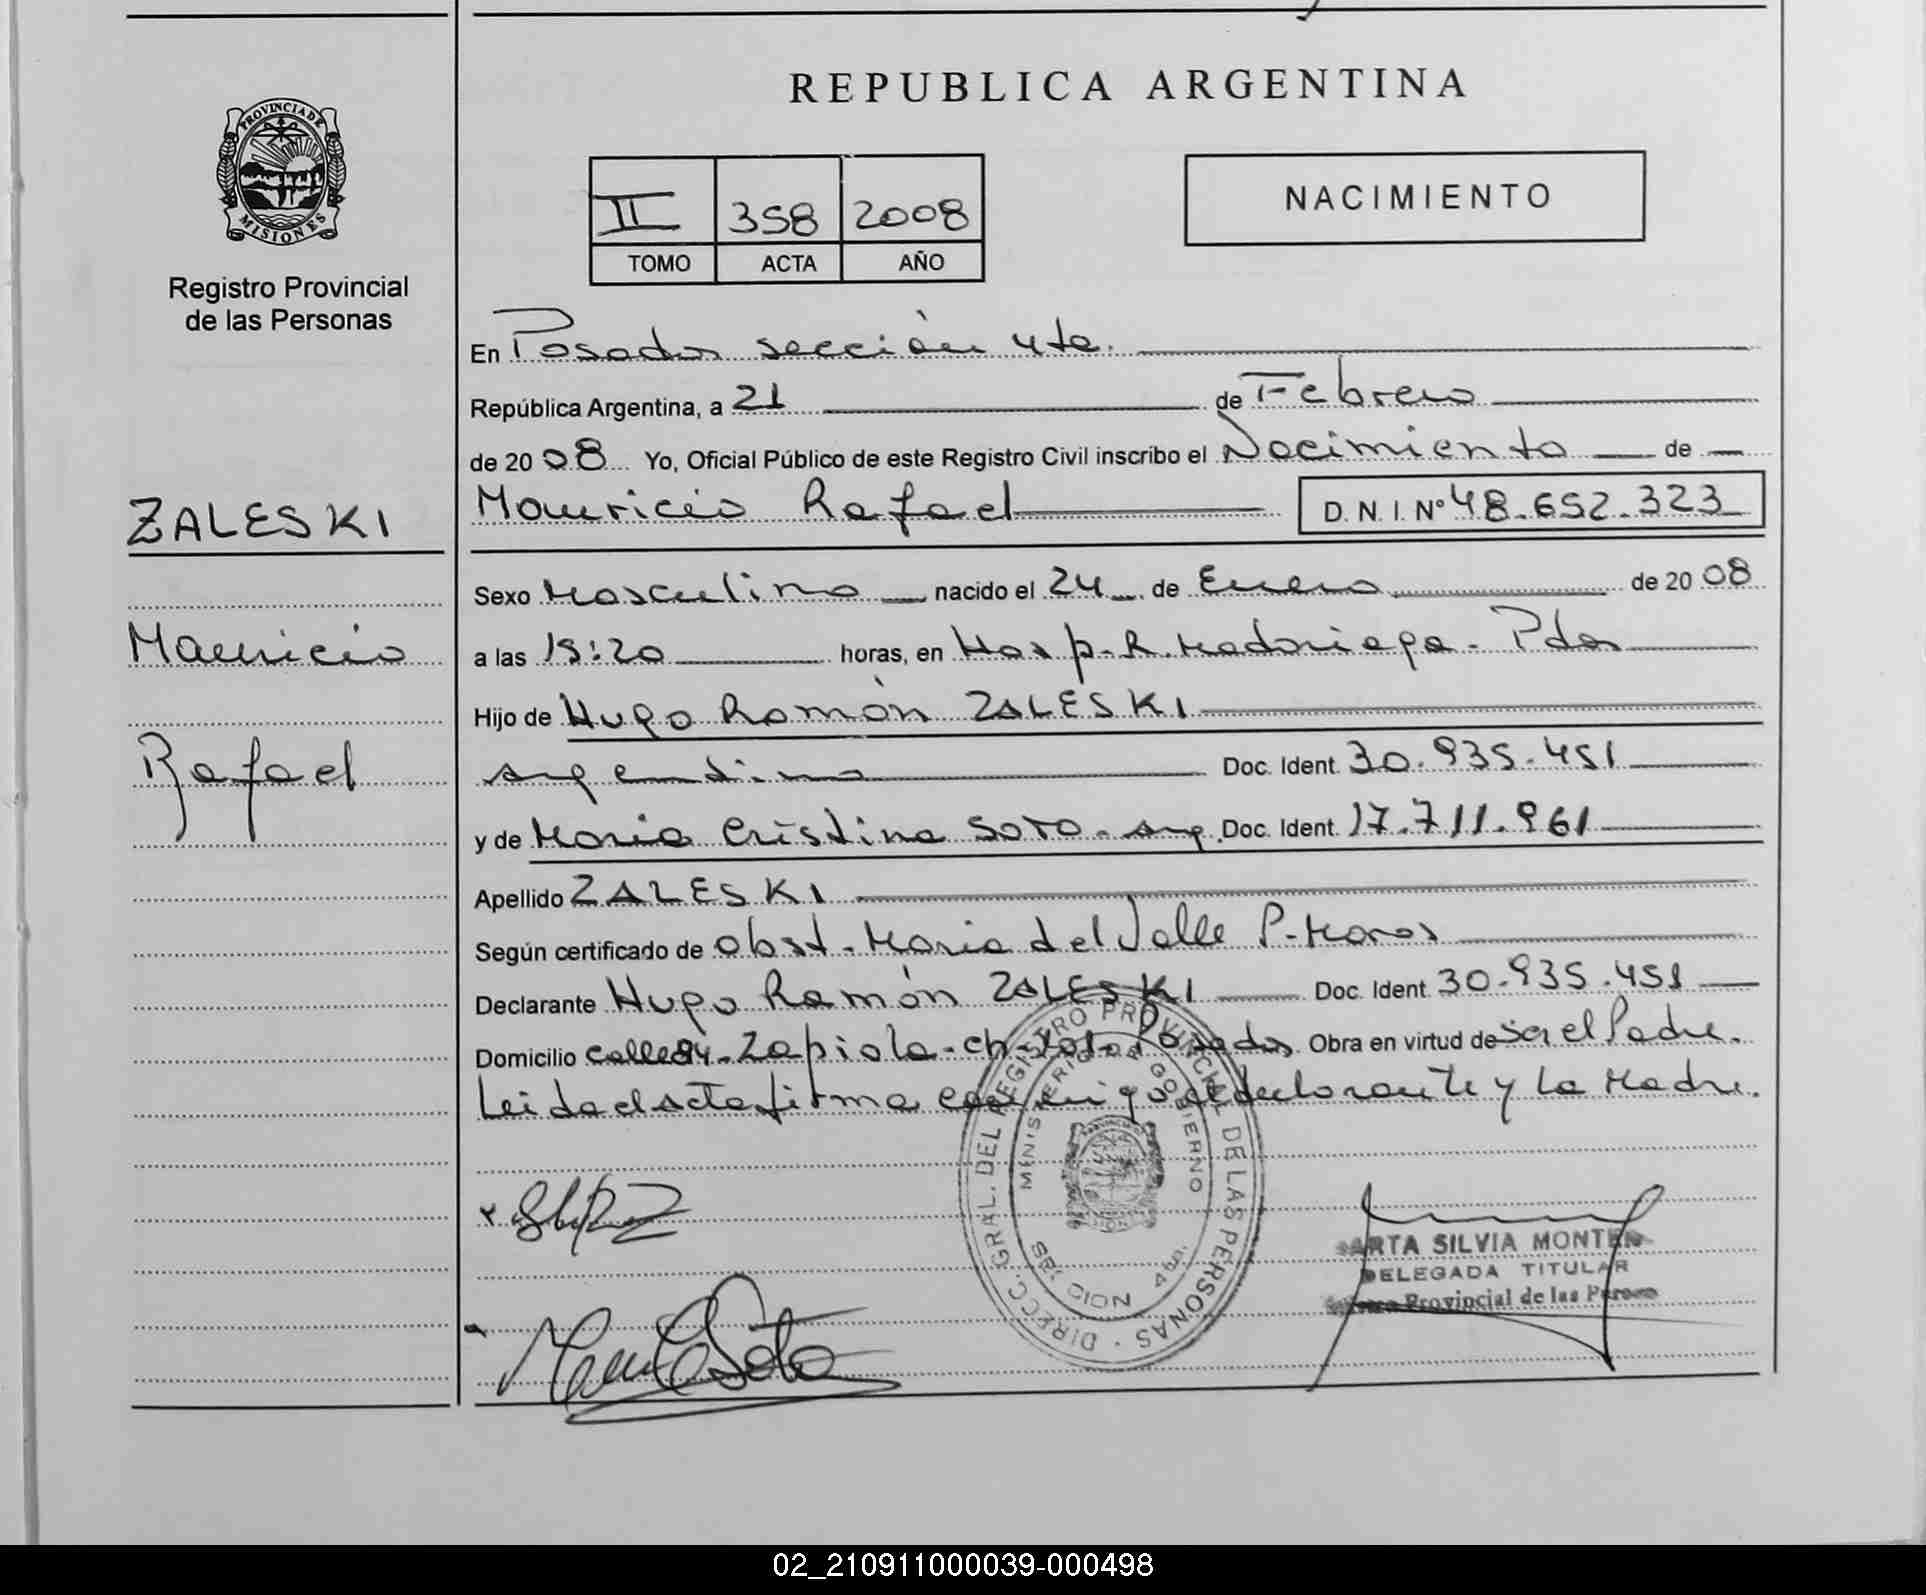 REPUBLICA ARGENTINA
PROVINCIA DE
MISIONES
Registro Provincial
de las Personas
II 358 2008
TOMO ACTA AÑO
NACIMIENTO
En Posadas sección 4ta.
República Argentina, a 21 de Febrero
de 2008 Yo, Oficial Público de este Registro Civil inscribo el Nacimiento de
ZALESKI
Mauricio Rafael D.N.I. Nº 48.652.323
Sexo Masculino nacido el 24 de Enero de 2008
Mauricio
a las 15:20 horas, en Hosp. R. Madariaga - Pdas
Hijo de Hugo Ramón ZALESKI
Rafael
argentino Doc. Ident. 30.935.451
y de Maria Cristina SOTO - arg. Doc. Ident. 17.711.961
Apellido ZALESKI
Según certificado de Obst. Maria del Valle P.
Declarante Hugo Ramón ZALESKI Doc. Ident. 30.935.451
Domicilio calle 94 - Zapiola - ch - Posadas Obra en virtud de Ser el Padre.
Leida el acta firma conmigo el declarante y La Madre.
DIRECC. GRAL. DEL REGISTRO PROVINCIAL DE LAS PERSONAS
MINISTERIO DE GOBIERNO
ARTA SILVIA MONTE
DELEGADA TITULAR
Provincial de las Person
02_210911000039-000498